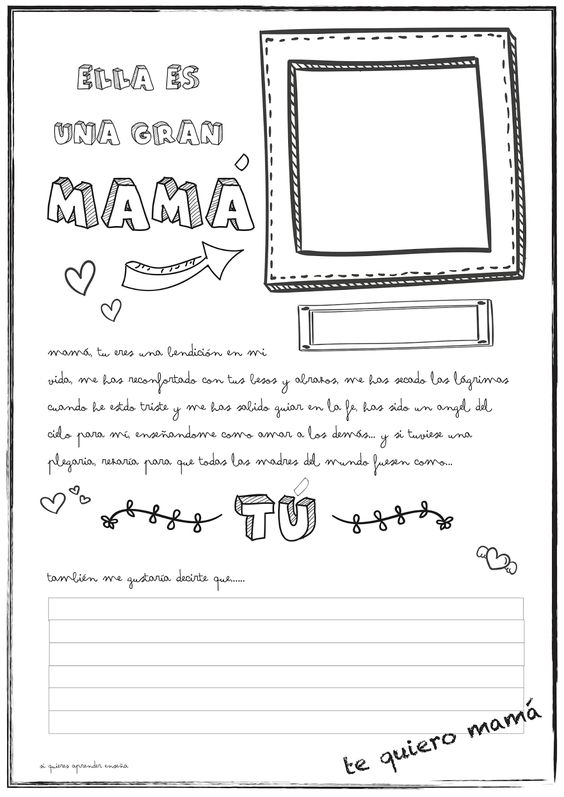 ELLA ES
UNA GRAN
MAMÁ
mamá, tu eres una bendición en mi
vida, me has reconfortado con tus besos y abrazos, me has secado las lágrimas
cuando he estdo triste y me has salido guiar en la fe, has sido un angel del
cielo para mí, enseñandome como amar a los demás... y si tuviese una
plegaria, rezaría para que todas las madres del mundo fuesen como...
TÚ
también me gustaría decirte que......
te quiero mamá
si quieres aprender enseña